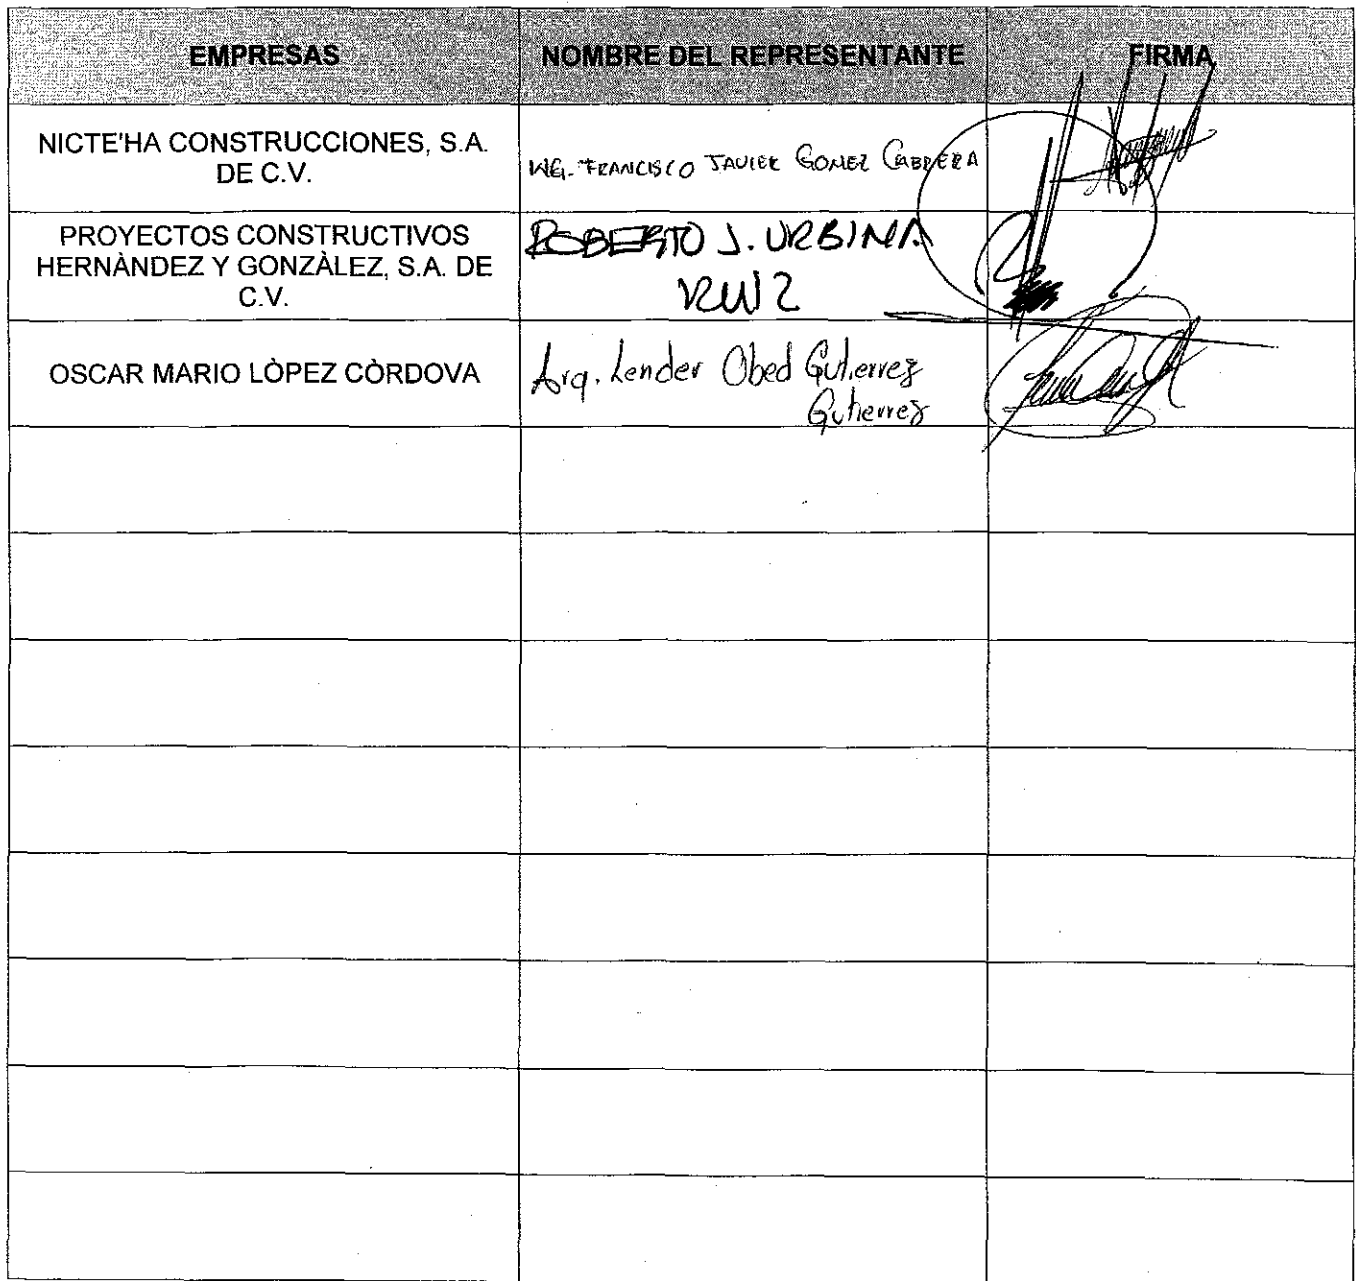 EMPRESAS
NOMBRE DEL REPRESENTANTE
FIRMA
NICTE'HA CONSTRUCCIONES, S.A.
DE C.V.
ING. FRANCISCO JAVIER GOMEZ CABRERA
PROYECTOS CONSTRUCTIVOS
HERNÀNDEZ Y GONZÀLEZ, S.A. DE
C.V.
ROBERTO J. URBINA
RUIZ
OSCAR MARIO LÒPEZ CÒRDOVA
Arq. Lender Obed Gutierrez
Gutierrez